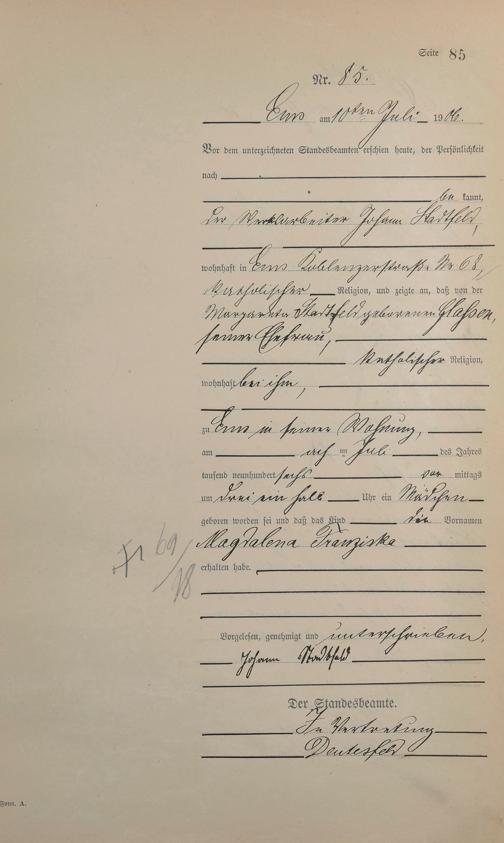 Seite 85
Nr. 85.
Ems am 10ten Juli 1906.
Vor dem unterzeichneten Standesbeamten erschien heute, der Persönlichkeit
nach
be kannt,
der Werkarbeiter Johann Stadtfeld,
wohnhaft in Ems Koblenzerstraße Nr 68,
katholischer Religion, und zeigte an, daß von der
Margareta Stadtfeld geborenen Classen,
seiner Ehefrau,
katholischer Religion,
wohnhaft bei ihm,
zu Ems in seiner Wohnung,
am acht ten Juli des Jahres
tausend neunhundert sechs vor mittags
um drei ein halb Uhr ein Mädchen
geboren worden sei und daß das Kind die Vornamen
Magdalena Franziska
erhalten habe.
Vorgelesen, genehmigt und unterschrieben.
Johann Stadtfeld
Der Standesbeamte.
In Vertretung
Form. A.